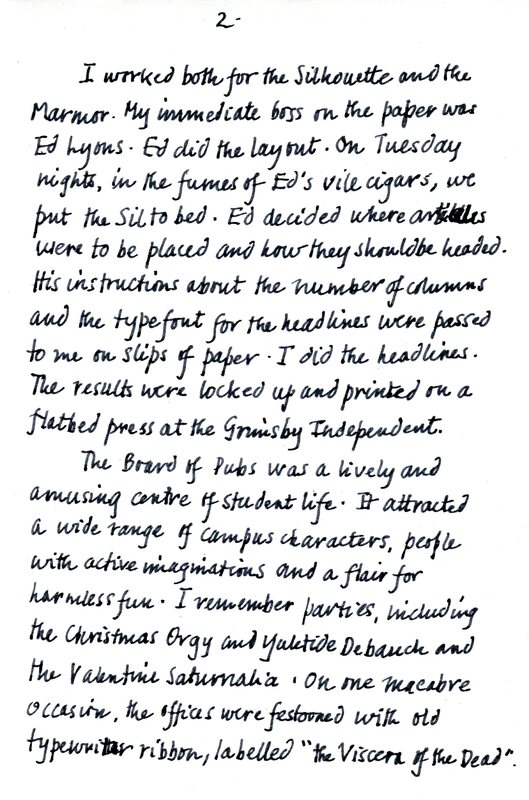 2-
I worked both for the Silhouette and the
Marmor. My immediate boss on the paper was
Ed Lyons. Ed did the layout. On Tuesday
nights, in the fumes of Ed's vile cigars, we
put the Sil to bed. Ed decided where articles
were to be placed and how they should be headed.
His instructions about the number of columns
and the type font for the headlines were passed
to me on slips of paper. I did the headlines.
The results were locked up and printed on a
flatbed press at the Grimsby Independent.
The Board of Pubs was a lively and
amusing centre of student life. It attracted
a wide range of campus characters, people
with active imaginations and a flair for
harmless fun. I remember parties, including
the Christmas Orgy and Yuletide Debauch and
the Valentine Saturnalia. On one macabre
occasion, the offices were festooned with old
typewriter ribbon, labelled "the Viscera of the Dead".